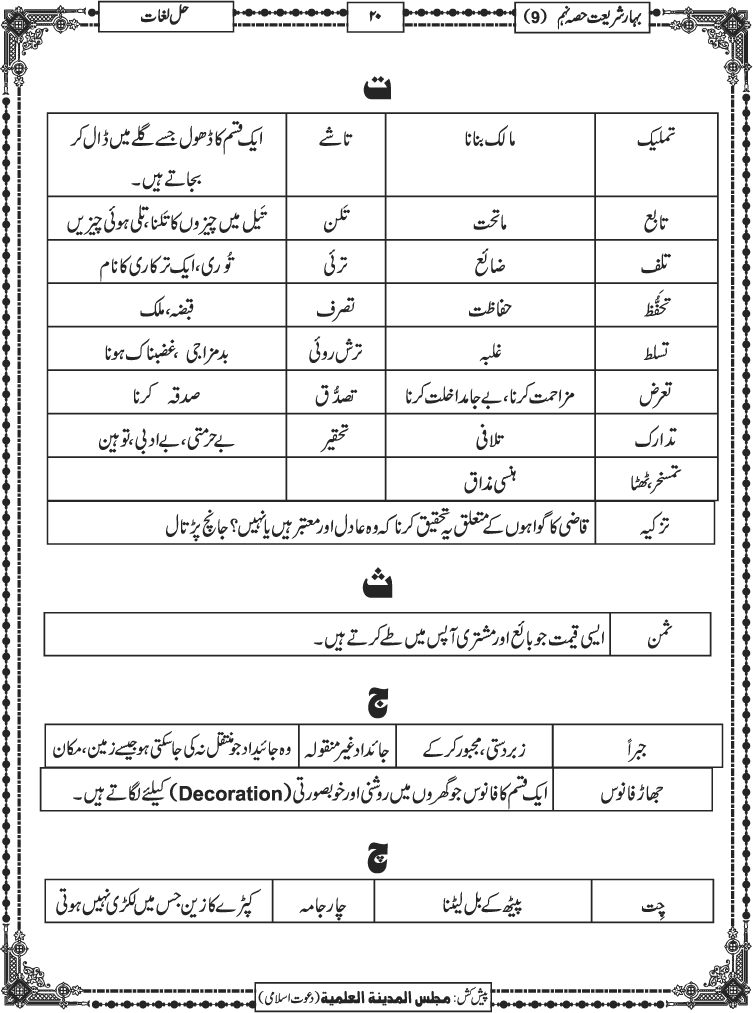 بہار شریعت حصہ نہم (9)
۲۰
حل لغات
ت
تملیک مالک بنانا تاشے ایک قسم کا ڈھول جسے گلے میں ڈال کر
بجاتے ہیں۔
تابع ماتحت تَلن تَیل میں چیزوں کا تلنا، تلی ہوئی چیزیں
تلف ضائع ترئی تُوری، ایک ترکاری کا نام
تحَفُّظ حفاظت تصرف قبضہ، ملک
تسلط غلبہ ترش روئی بدمزاجی ، غضبناک ہونا
تعرض مزاحمت کرنا، بے جا مداخلت کرنا تصدُّق صدقہ کرنا
تدارک تلافی تحقیر بے حرمتی، بے ادبی، توہین
تمسخر، ٹھٹا ہنسی مذاق
تزکیہ قاضی کا گواہوں کے متعلق یہ تحقیق کرنا کہ وہ عادل اور معتبر ہیں یا نہیں؟ جانچ پڑتال
ث
ثمن ایسی قیمت جو بائع اور مشتری آپس میں طے کرتے ہیں۔
ج
جبراً زبردستی، مجبور کر کے جائداد غیر منقولہ وہ جائیداد جو منتقل نہ کی جاسکتی ہو جیسے زمین، مکان
جھاڑ فانوس ایک قسم کا فانوس جو گھروں میں روشنی اور خوبصورتی (Decoration) کیلئے لگاتے ہیں۔
چ
چِت پیٹھ کے بل لیٹنا چار جامہ کپڑے کا زین جس میں لکڑی نہیں ہوتی
پیش کش: مجلس المدینة العلمیة (دعوت اسلامی)